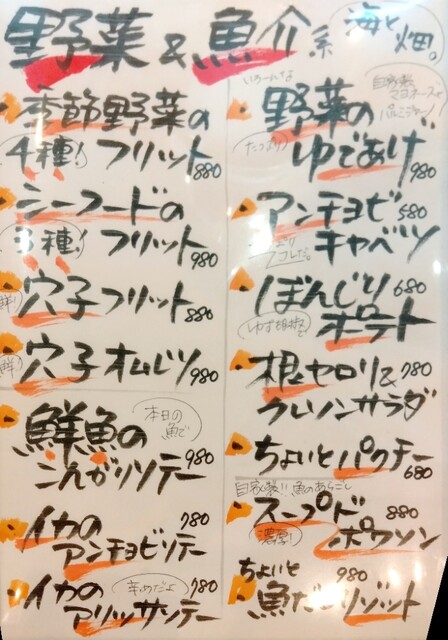 野菜&魚介系 海と畑。
季節野菜の
4種! フリット 880
シーフードの
3種! フリット 980
穴子フリット 880
穴子オムレツ 980
鮮魚の 本日の魚で
こんがりソテー 980
イカの 780
アンチョビソテー
イカの 辛めだよ 780
アリッサソテー
いろーんな
野菜の 自家製マヨネーズで
たっぷり ゆであげ 980
アンチョビ 580
キャベツ
ぼんじり 680
ゆず胡椒で ポテト
根セロリ& 780
クレソンサラダ
ちょいとパクチー 680
自家製!!魚のあらごし
スープド 880
濃厚! ポワソン
ちょいと 980
魚だしリゾット